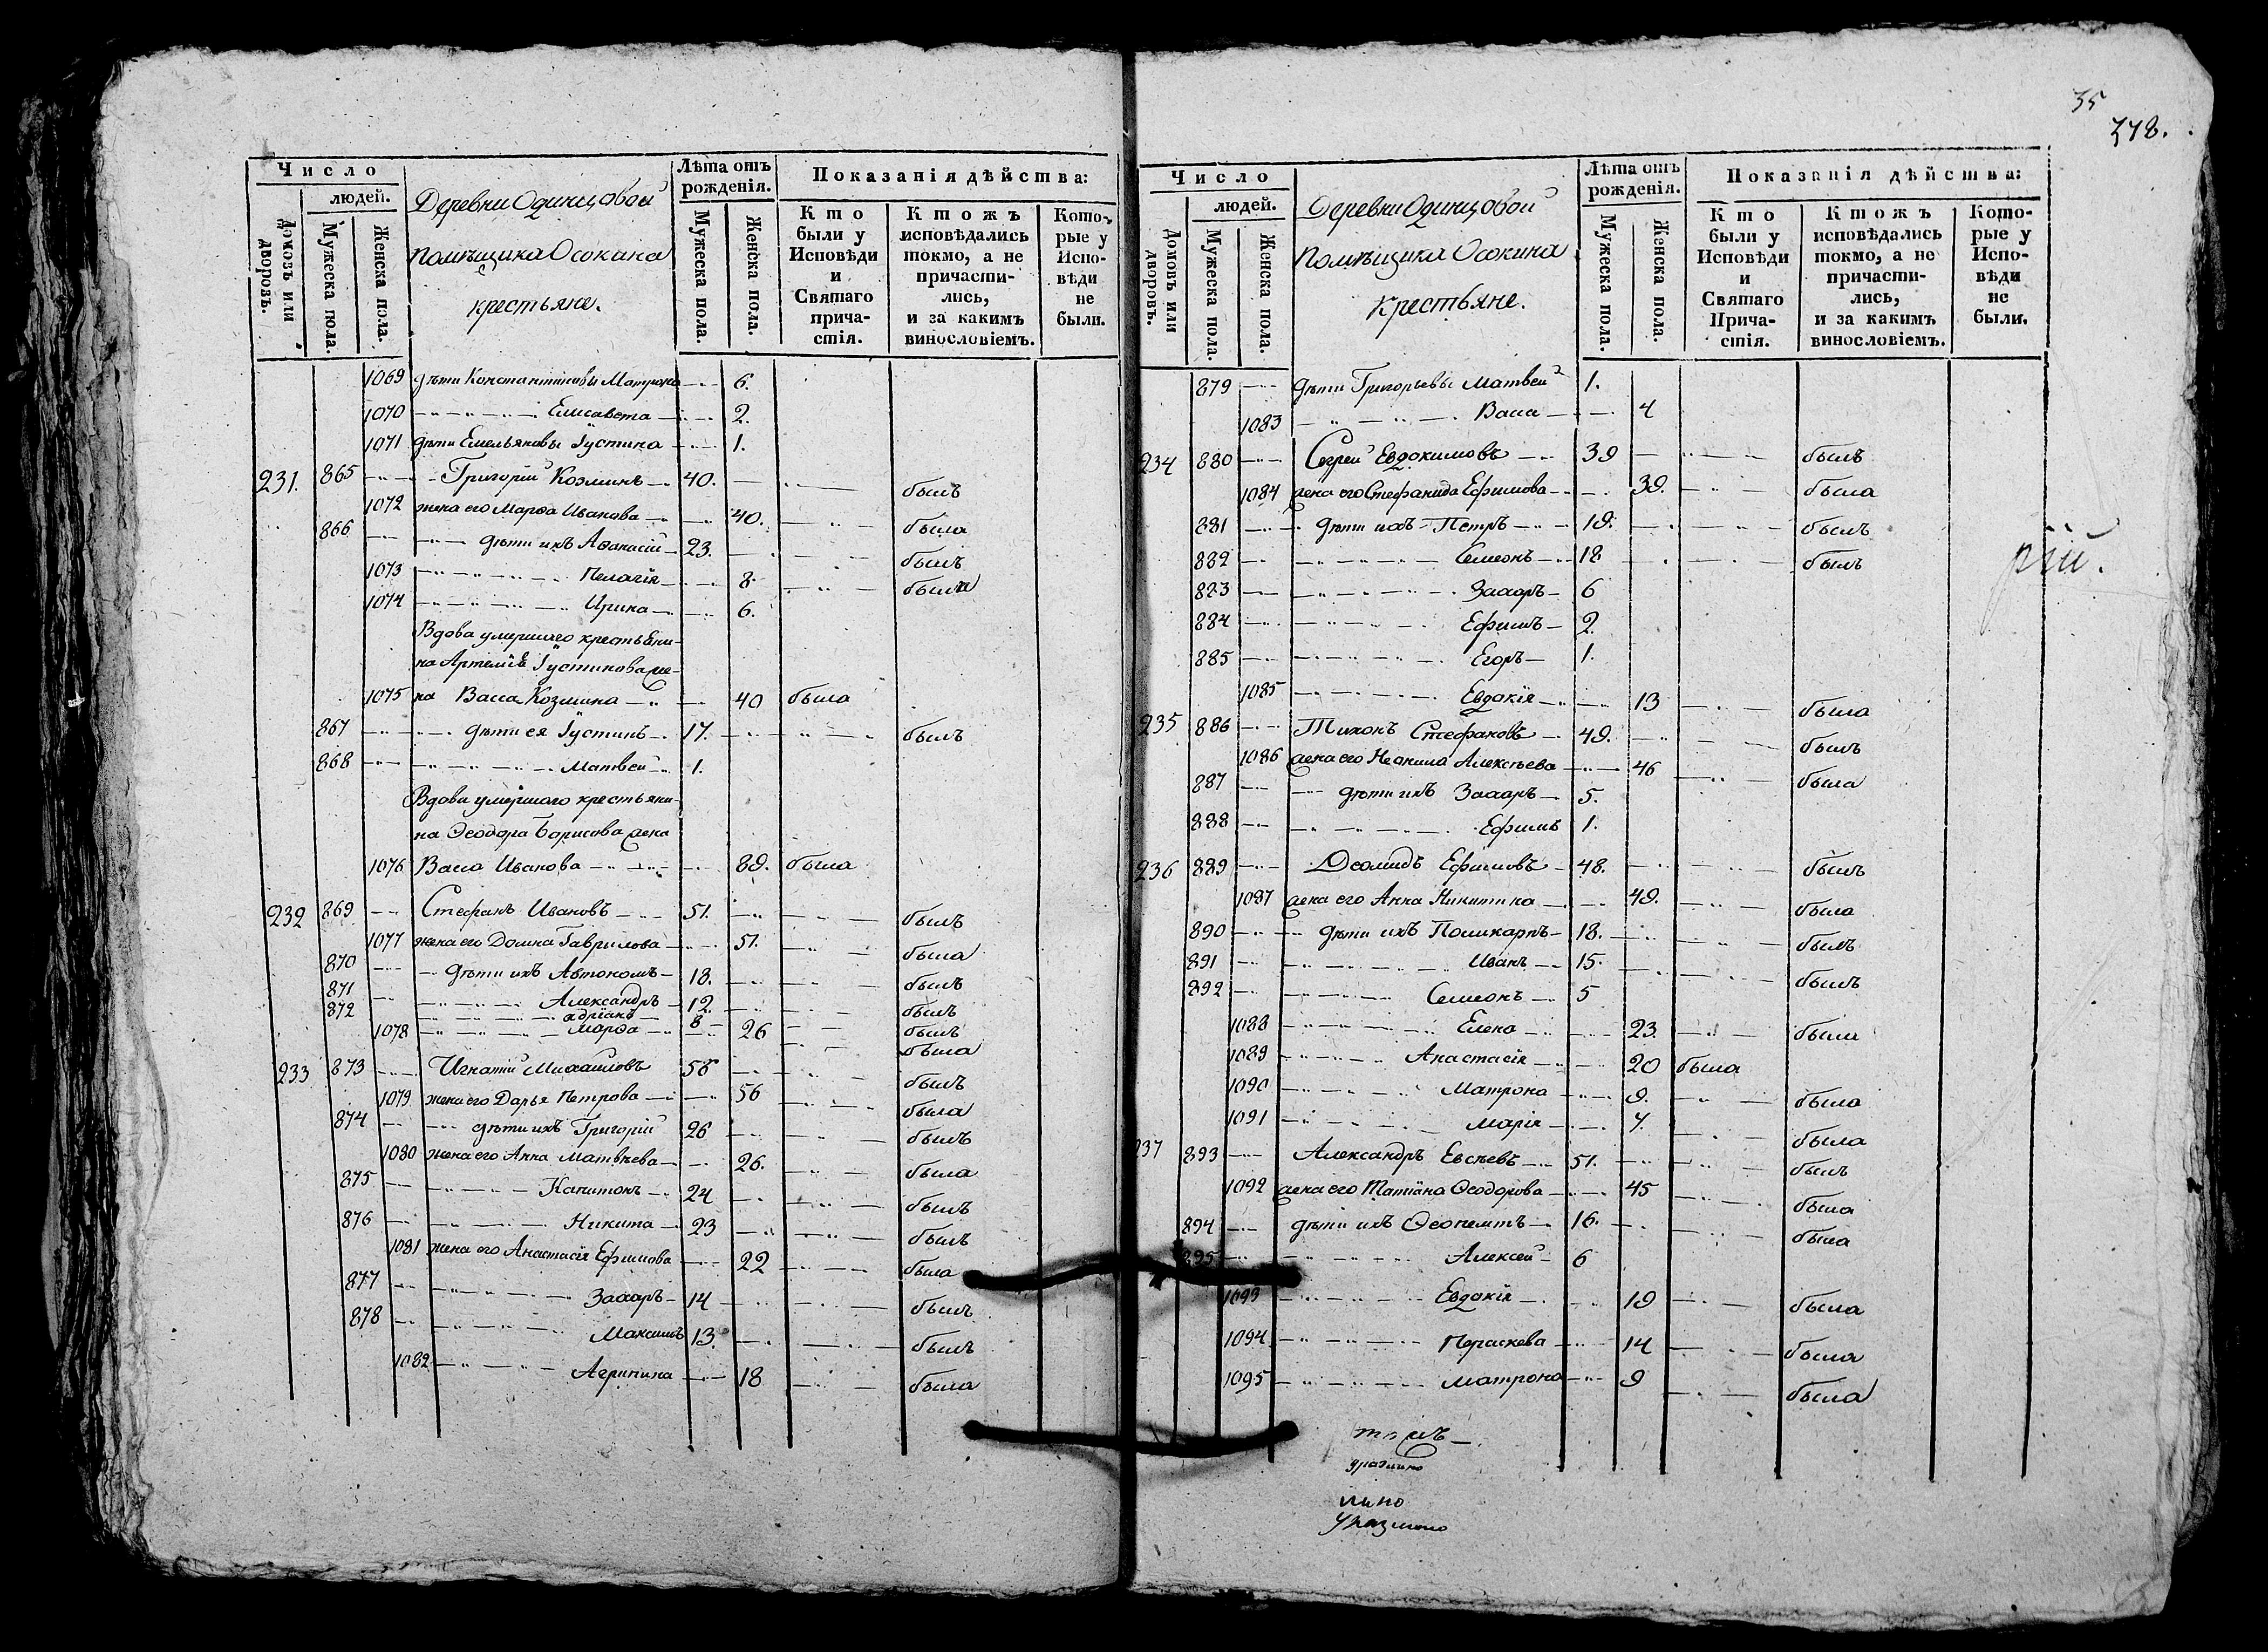 35
378.
Число
людей.
Домовъ или дворовъ.
Мужеска пола.
Женска пола.
Деревни Одинцовой
помѣщика Осокина
крестьяне.
Лѣта отъ рожденія.
Мужеска пола.
Женска пола.
Показанія дѣйства:
Кто были у Исповѣди и Святаго причастія.
Ктожъ исповѣдались токмо, а не причастились, и за какимъ винословіемъ.
Которые у Исповѣди не были.
1069 дѣти Константиновы Матрона 6.
1070 Елисавета 2.
1071 дѣти Емельяновы Іустина 1.
231. 865 Григорій Козминъ 40. былъ
1072 жена его Марѳа Иванова 40. была
866 дѣти ихъ Аѳанасій 23. былъ
1073 Пелагія 8. была
1074 Ирина 6.
Вдова умершаго крестьяни-
на Артемія Іустинова же-
1075 на Васса Козмина 40 была
867 дѣти ея Іустинъ 17. былъ
868 Матвей 1.
Вдова умершаго крестьяни-
на Ѳеодора Борисова жена
1076 Васса Иванова 89. была
232 869 Стефанъ Ивановъ 51. былъ
1077 жена его Домна Гаврилова 51. была
870 дѣти ихъ Автономъ 18. былъ
871 Александръ 12. былъ
872 Адріанъ 8 былъ
1078 Марѳа 26 была
233 873 Игнатій Михаиловъ 58 былъ
1079 жена его Дарья Петрова 56 была
874 дѣти ихъ Григорій 26 былъ
1080 жена его Анна Матвѣева 26. была
875 Капитонъ 24 былъ
876 Никита 23 былъ
1081 жена его Анастасія Ефимова 22 была
877 Захаръ 14 былъ
878 Максимъ 13. былъ
1082 Агрипина 18 была
Число
людей.
Домовъ или дворовъ.
Мужеска пола.
Женска пола.
Деревни Одинцовой
помѣщика Осокина
крестьяне.
Лѣта отъ рожденія.
Мужеска пола.
Женска пола.
Показанія дѣйства:
Кто были у Исповѣди и Святаго Причастія.
Ктожъ исповѣдались токмо, а не причастились, и за какимъ винословіемъ.
Которые у Исповѣди не были.
879 дѣти Григорьевы Матвей 1.
1083 Васса 4
234 880 Сергей Евдокимовъ 39 былъ
1084 жена его Стефанида Ефимова 39. была
881 дѣти ихъ Петръ 19. былъ
882 Семіонъ 18 былъ
883 Захаръ 6
884 Ефимъ 2.
885 Егоръ 1.
1085 Евдокія 13 была
235 886 Тихонъ Стефановъ 49. былъ
1086 жена его Неонила Алексѣева 46 была
887 дѣти ихъ Захаръ 5.
888 Ефимъ 1.
236 889 Деомидъ Ефимовъ 48. былъ
1087 жена его Анна Никитина 49. была
890 дѣти ихъ Поликарпъ 18. былъ
891 Иванъ 15. былъ
892 Семіонъ 5
1088 Елена 23. была
1089 Анастасія 20 была
1090 Матрона 9. была
1091 Марія 7. была
237 893 Александръ Евсѣевъ 51. былъ
1092 жена его Татіана Ѳеодорова 45 была
894 дѣти ихъ Ѳеопемтъ 16. была
895 Алексей 6
1093 Евдокія 19 была
1094 Параскева 14 была
1095 Матрона 9 была
рій.